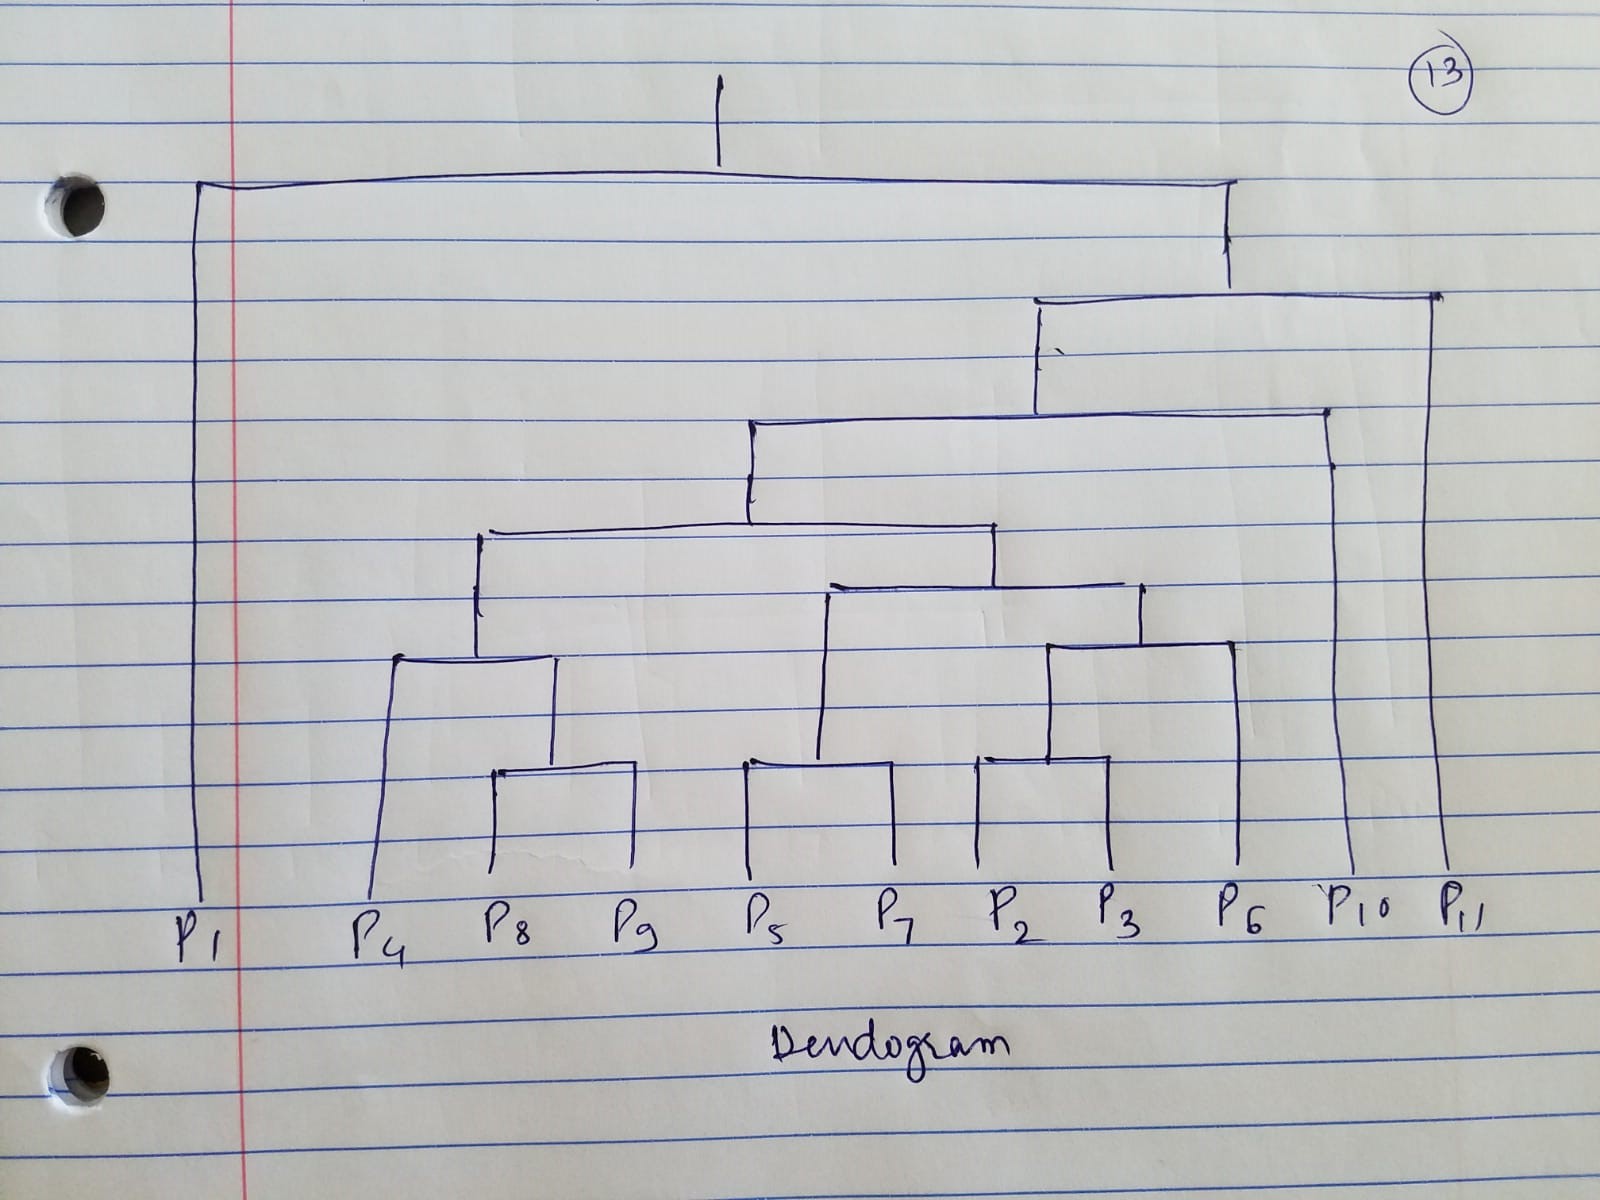 13
P1 P4 P8 P9 P5 P7 P2 P3 P6 P10 P11
Dendogram